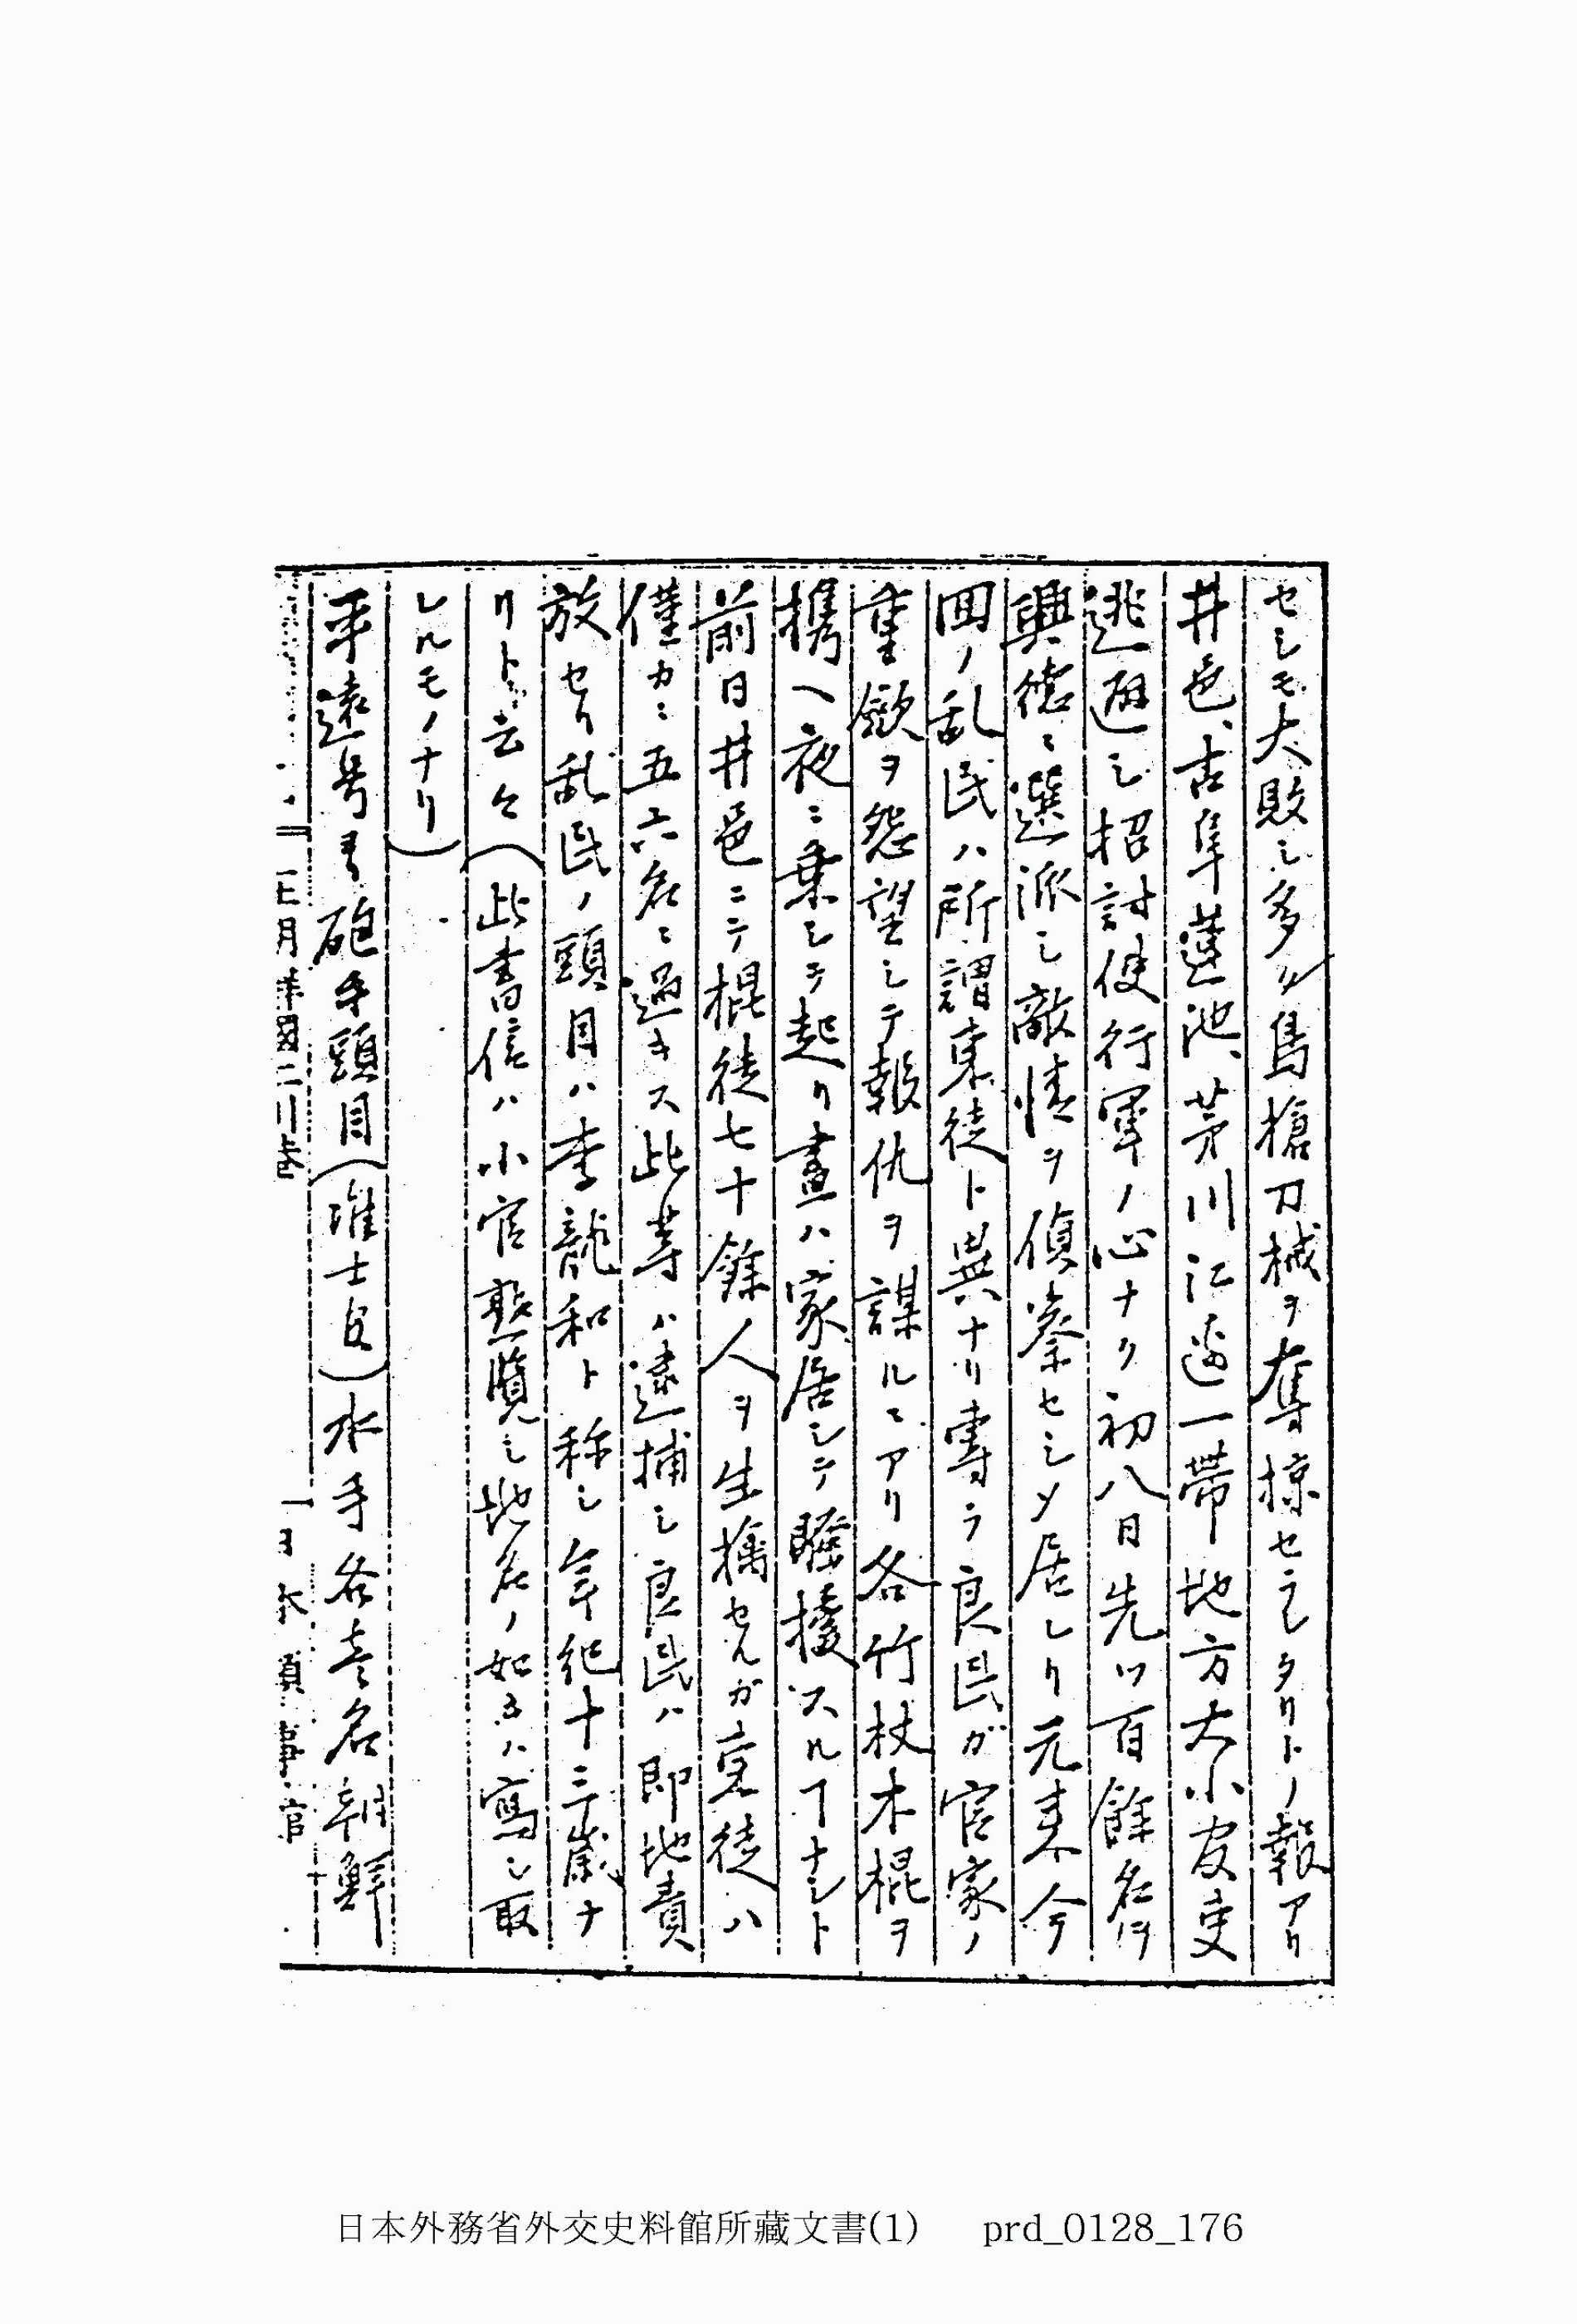 セシモ大敗シ多ク鳥槍刀械ヲ奪掠セラレタリトノ報アリ
井邑、古阜、蓮池、茅川江邊一帶地方大小官吏
逃避シ招討使行軍ノ心ナク初八日先ツ百餘名ヲ
興德ニ選派シ敵情ヲ偵察セシメ居レリ元来今
回ノ乱民ハ所謂東徒ト異ナリ専ラ良民ガ官家ノ
重歛ヲ怨望シテ報仇ヲ謀ルニアリ各竹杖木棍ヲ
携ヘ夜ニ乗シテ起リ晝ハ家居シテ騷擾スルヿナシト
前日井邑ニテ棍徒七十餘人ヲ生擒セルガ東徒ハ
僅カニ五六名ニ過キス此等ハ逮捕シ良民ハ即地責
放セリ乱民ノ頭目ハ李龍和ト称シ年紀十三歳ナ
リト云々（此書信ハ小官熟覧シ地名ノ如キハ寫シ取
レルモノナリ）
平遠号ヨリ砲手頭目（准士官）水手各壱名朝鮮
日本領事官
日本外務省外交史料館所藏文書(1) prd_0128_176